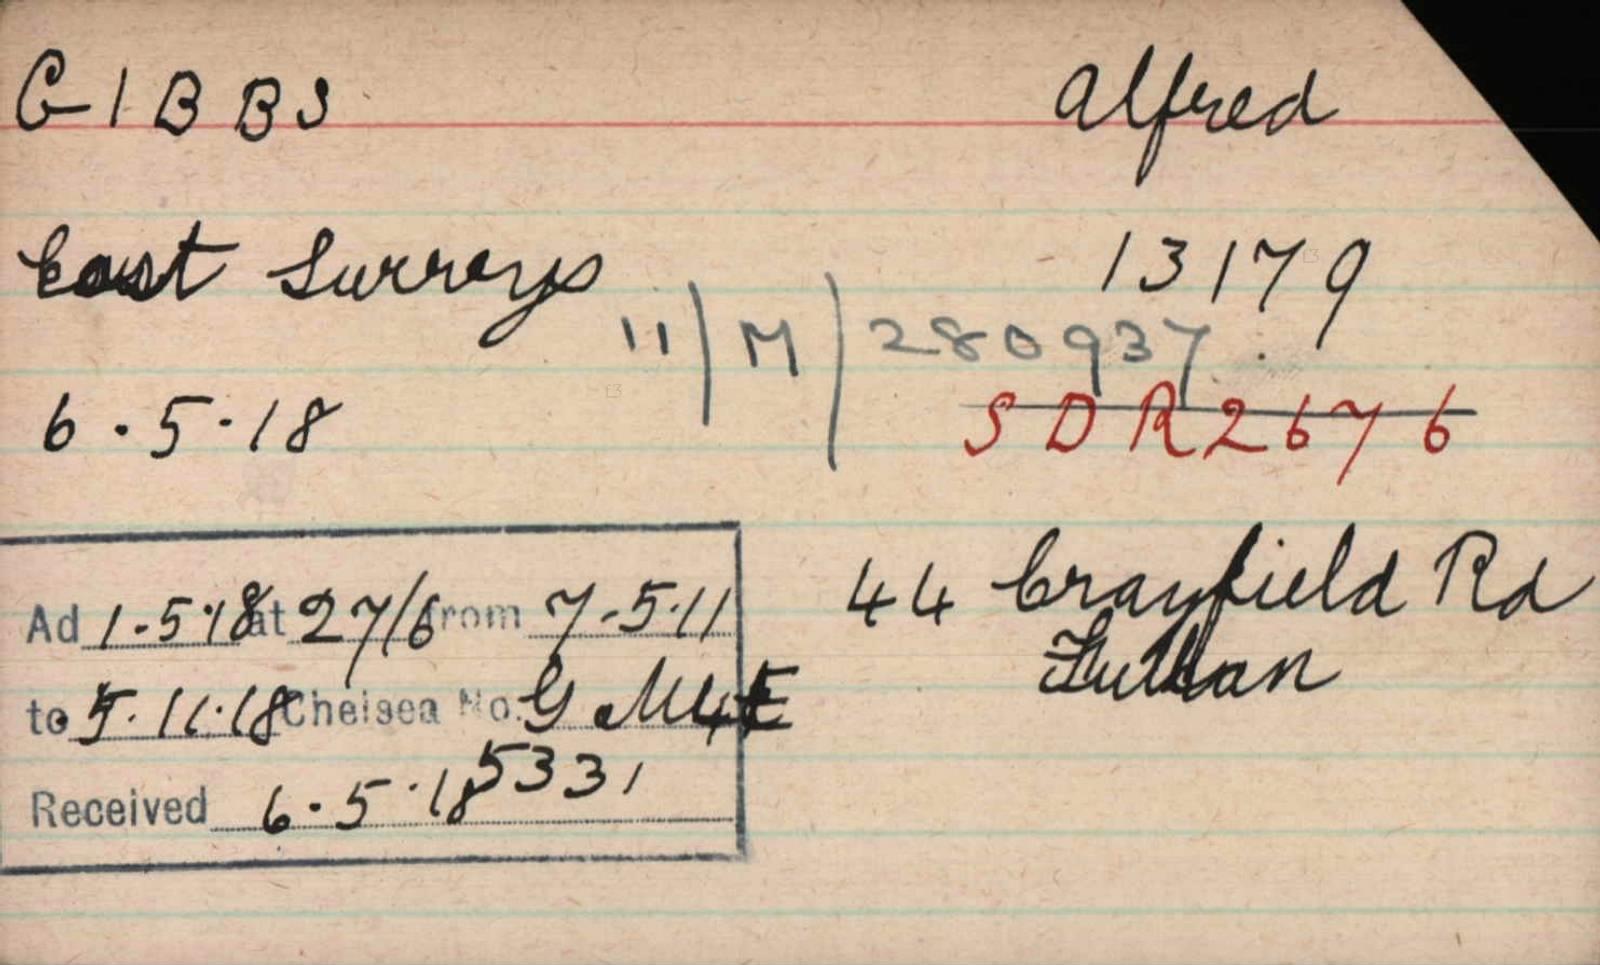 GIBBS Alfred
East Surreys 13179
11/M/280937
6.5.18 SDR2676
44 Crayfield Rd
Fulham
Ad 1.5.18 at 27/6 from 7.5.11
to 5.11.18 Chelsea No. G M4E
5331
Received 6.5.18